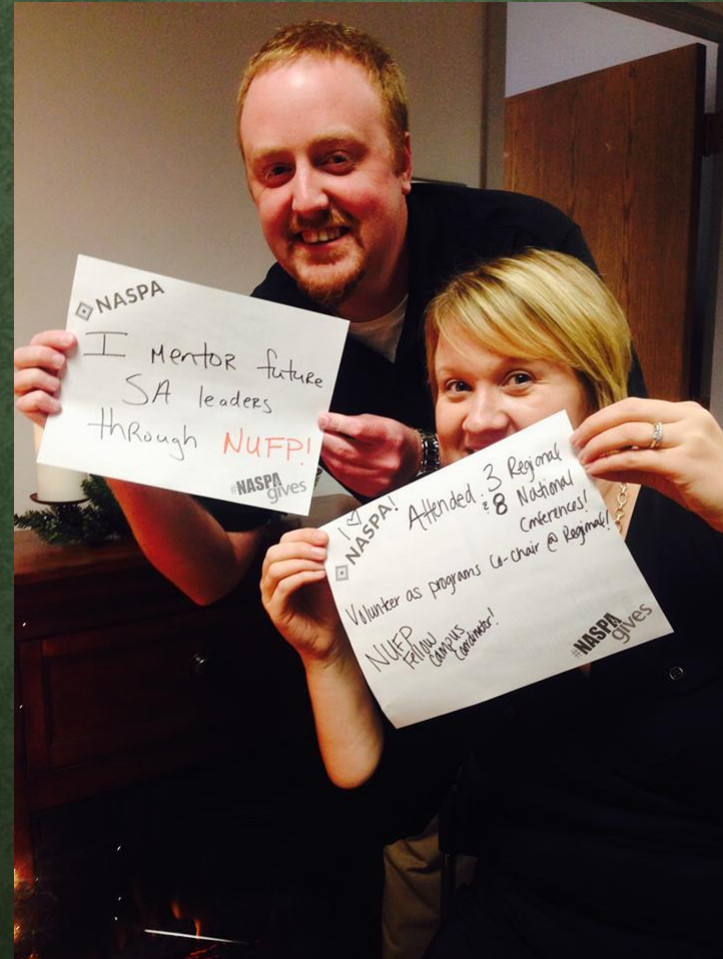 NASPA
I Mentor future
SA leaders
through NUFP!
#NASPA
gives
I ♡
NASPA!
Attended: 3 Regional
& 8 National
Conferences!
Volunteer as programs Co-chair @ Regional!
NUFP
Fellow
Campus
Coordinator!
#NASPA
gives